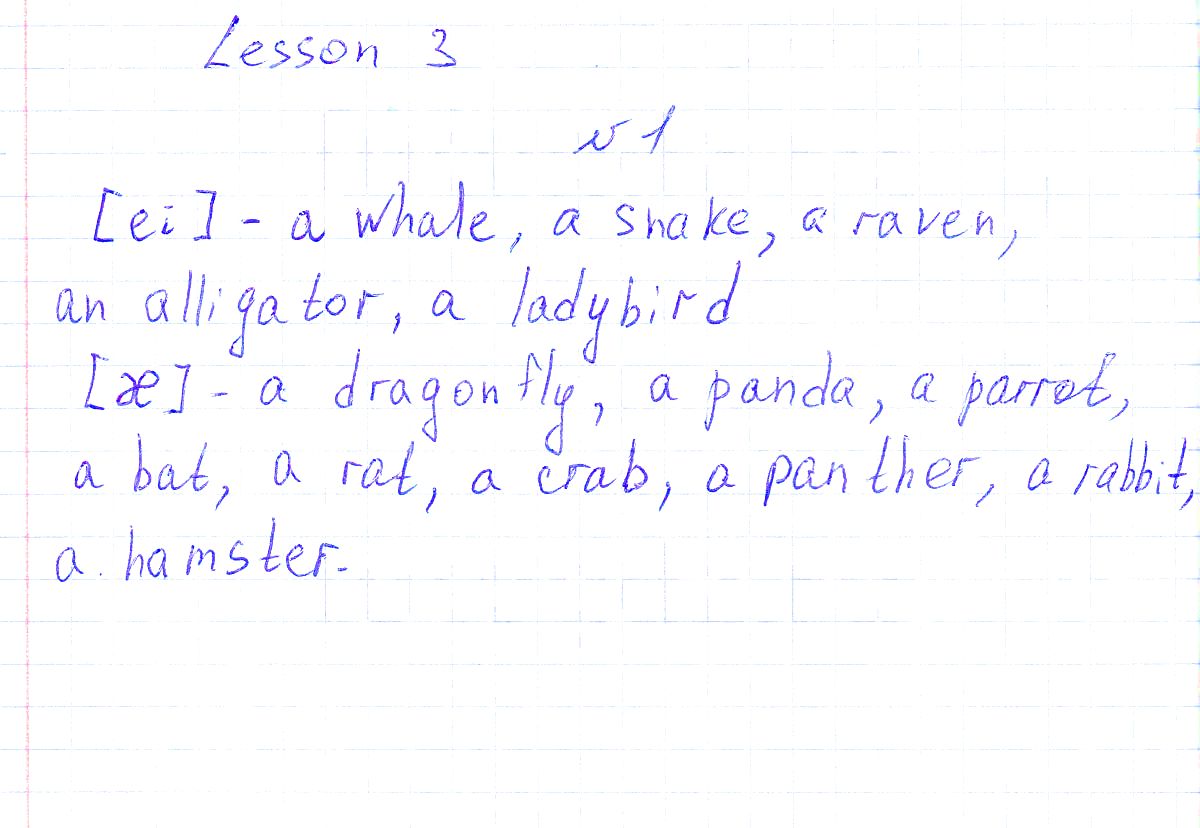 Lesson 3
№1
[ei] - a whale, a snake, a raven,
an alligator, a ladybird
[æ] - a dragonfly, a panda, a parrot,
a bat, a rat, a crab, a panther, a rabbit,
a hamster.